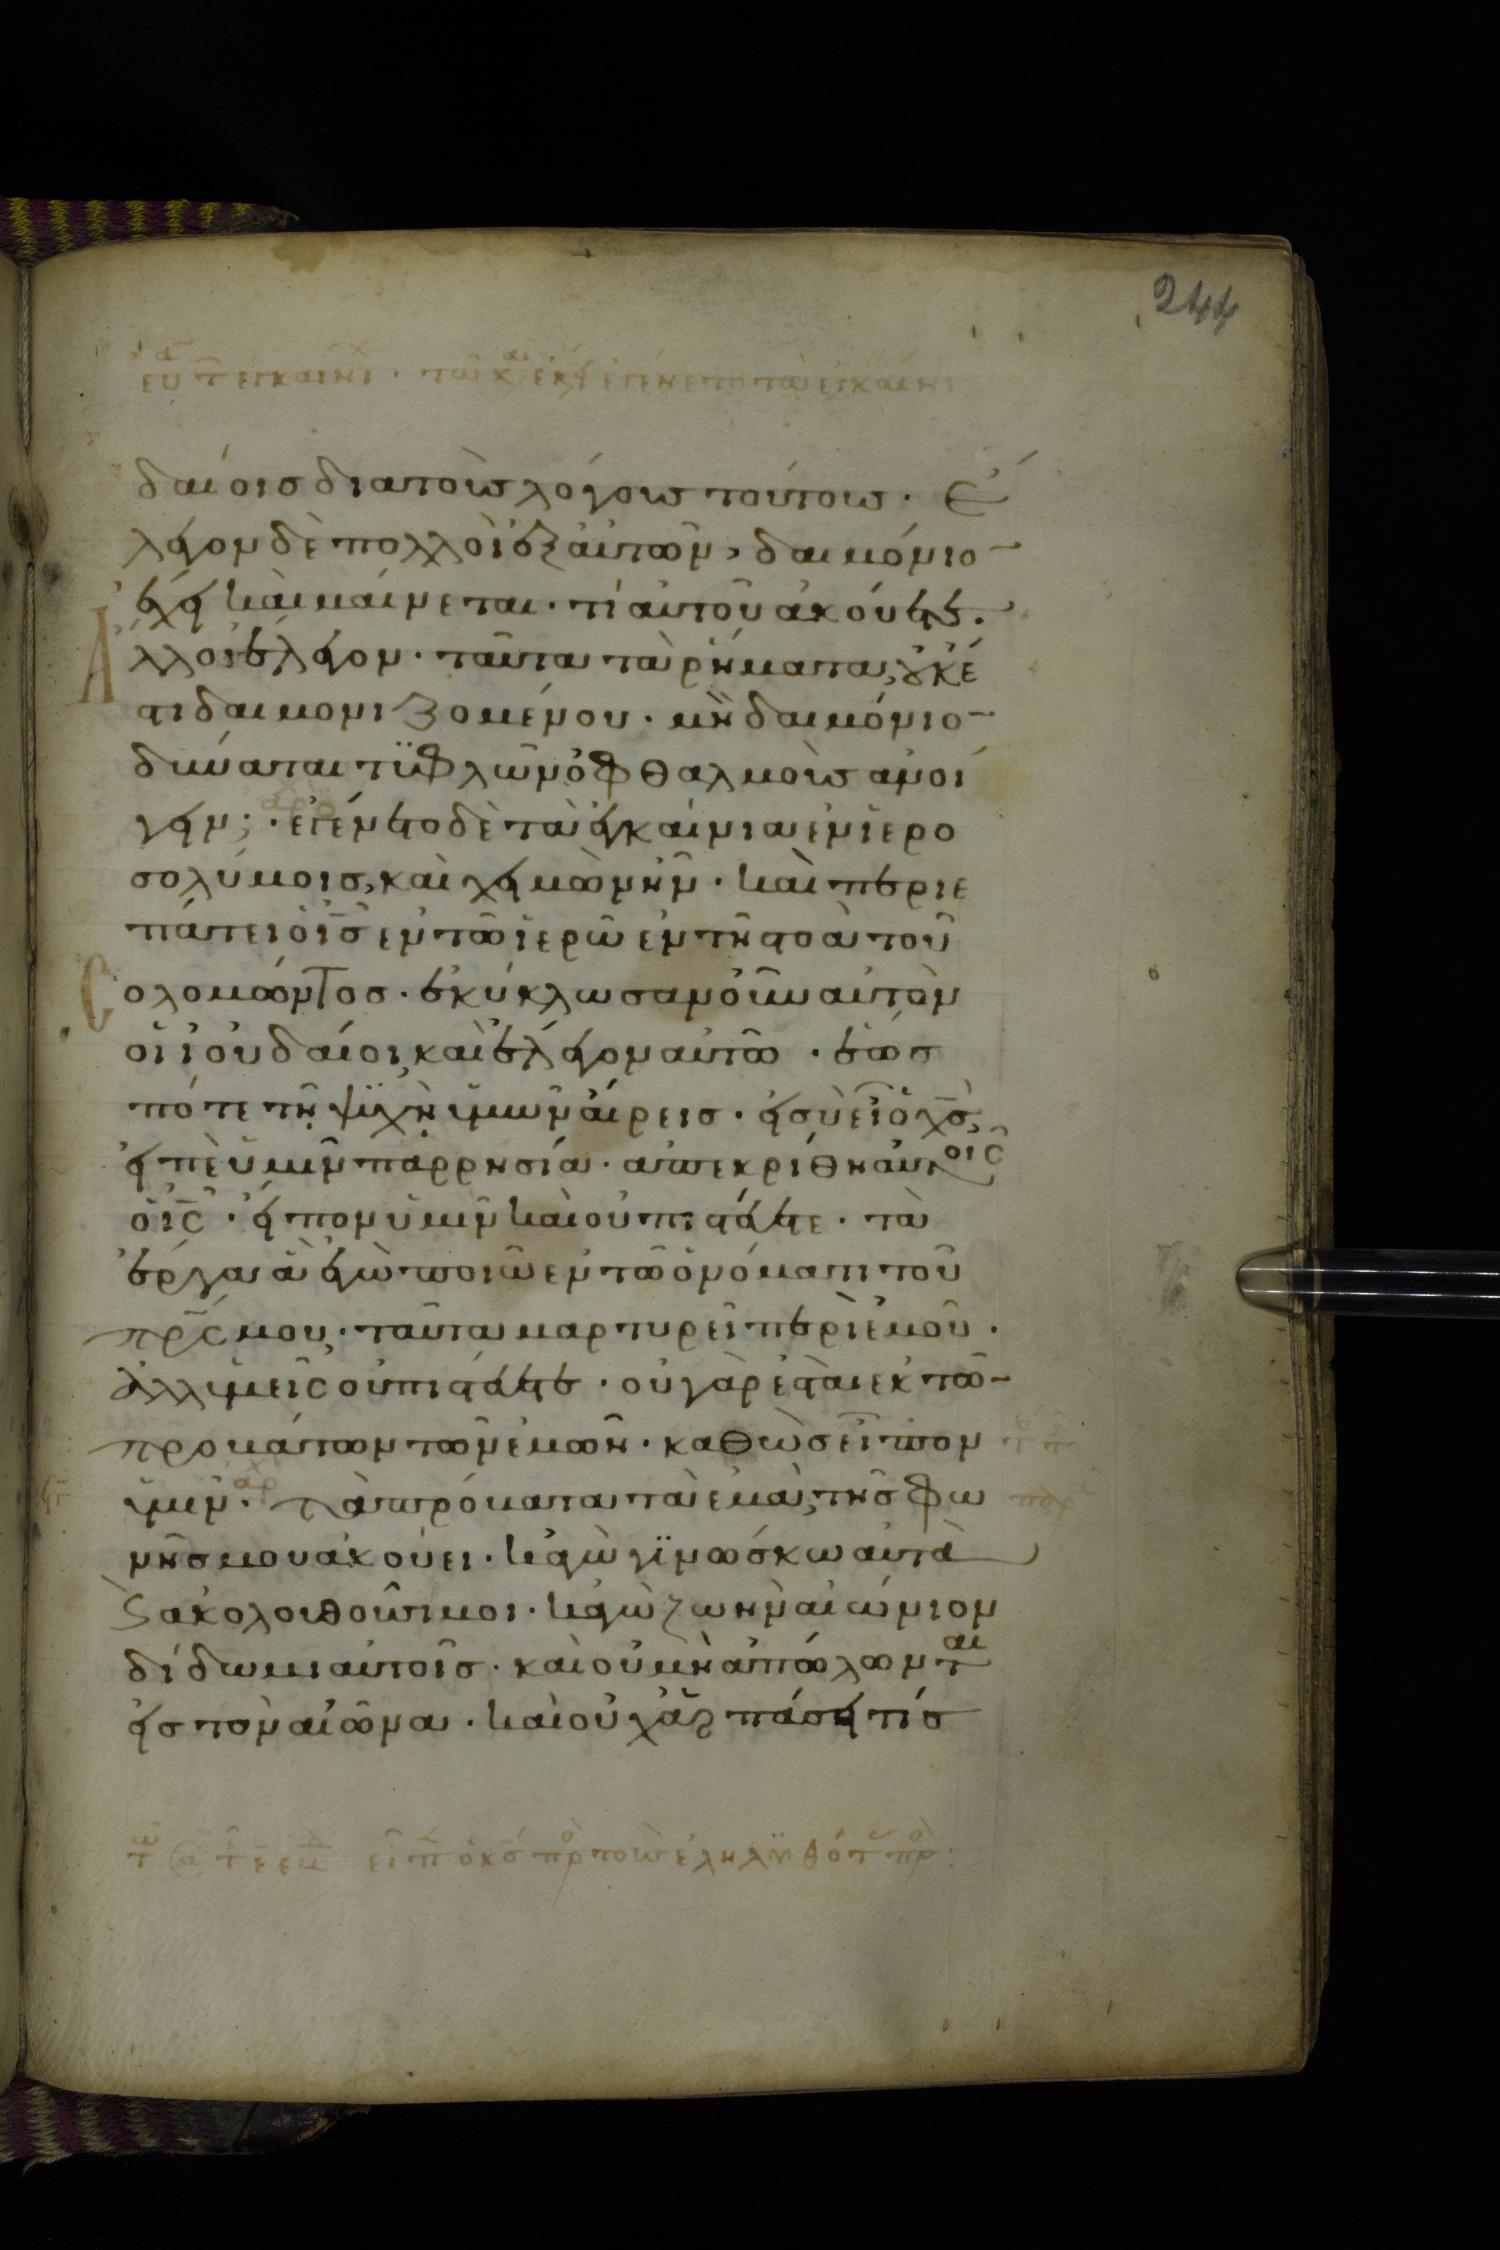 244
δαίοισ διὰ τοὺσ λόγουσ τούτουσ · Ἔ
λεγον δὲ πολλοὶ ἐξ αὐτῶν, δαιμόνιο̄
ἔχει καὶ μαίνεται · τί αὐτοῦ ἀκούετε.
Ἄλλοι ἔλεγον · ταῦτα τὰ ῥήματα, οὐκ ἔ
στι δαιμονιζομένου · μὴ δαιμόνιο̄
δύναται τυφλῶν ὀφθαλμοὺσ ἀνοί
γειν; · ἐγένετο δὲ τὰ ἐγκαίνια ἐν ἱερο
σολύμοισ, καὶ χειμὼν ἦν · καὶ περιε
πάτει ὁ ι̅σ̅ ἐν τῶ ἱερῶ ἐν τῆ στοᾶ τοῦ
Σολομῶντοσ · ἐκύκλωσαν οὖν αὐτὸν
οἱ ἰουδαίοι, καὶ ἔλεγον αὐτῶ · ἕωσ
πότε τὴν ψυχὴν ἡμῶν αἴρεισ · εἰ σὺ εἶ ὁ χ̅σ̅,
εἰπὲ ἡμῖν παρρησία · ἀπεκρίθη αὐτοῖσ
ὁ ι̅σ̅ · εἶπον ὑμῖν καὶ οὐ πιστεύετε · τὰ
ἔργα ἃ ἐγὼ ποιῶ ἐν τῶ ὀνόματι τοῦ
π̅ρ̅σ̅ μου, · ταῦτα μαρτυρεῖ περὶ ἐμοῦ ·
ἀλλ ὑμεῖσ οὐ πιστεύετε · οὐ γὰρ ἐστὲ ἐκ τῶ̄
προβάτων τῶν ἐμῶν · καθὼσ εἶπον
ὑμῖν · τὰ πρόβατα τὰ ἐμὰ, τῆσ φω
νῆσ μου ἀκούει · κἀγὼ γινώσκω αὐτὰ
καὶ ἀκολουθοῦσι μοι · κἀγὼ ζωὴν αἰώνιον
δίδωμι αὐτοῖσ · καὶ οὐ μὴ ἀπόλωνται
εἰσ τὸν αἰῶνα · καὶ οὐχ ἁρπάσει τίσ